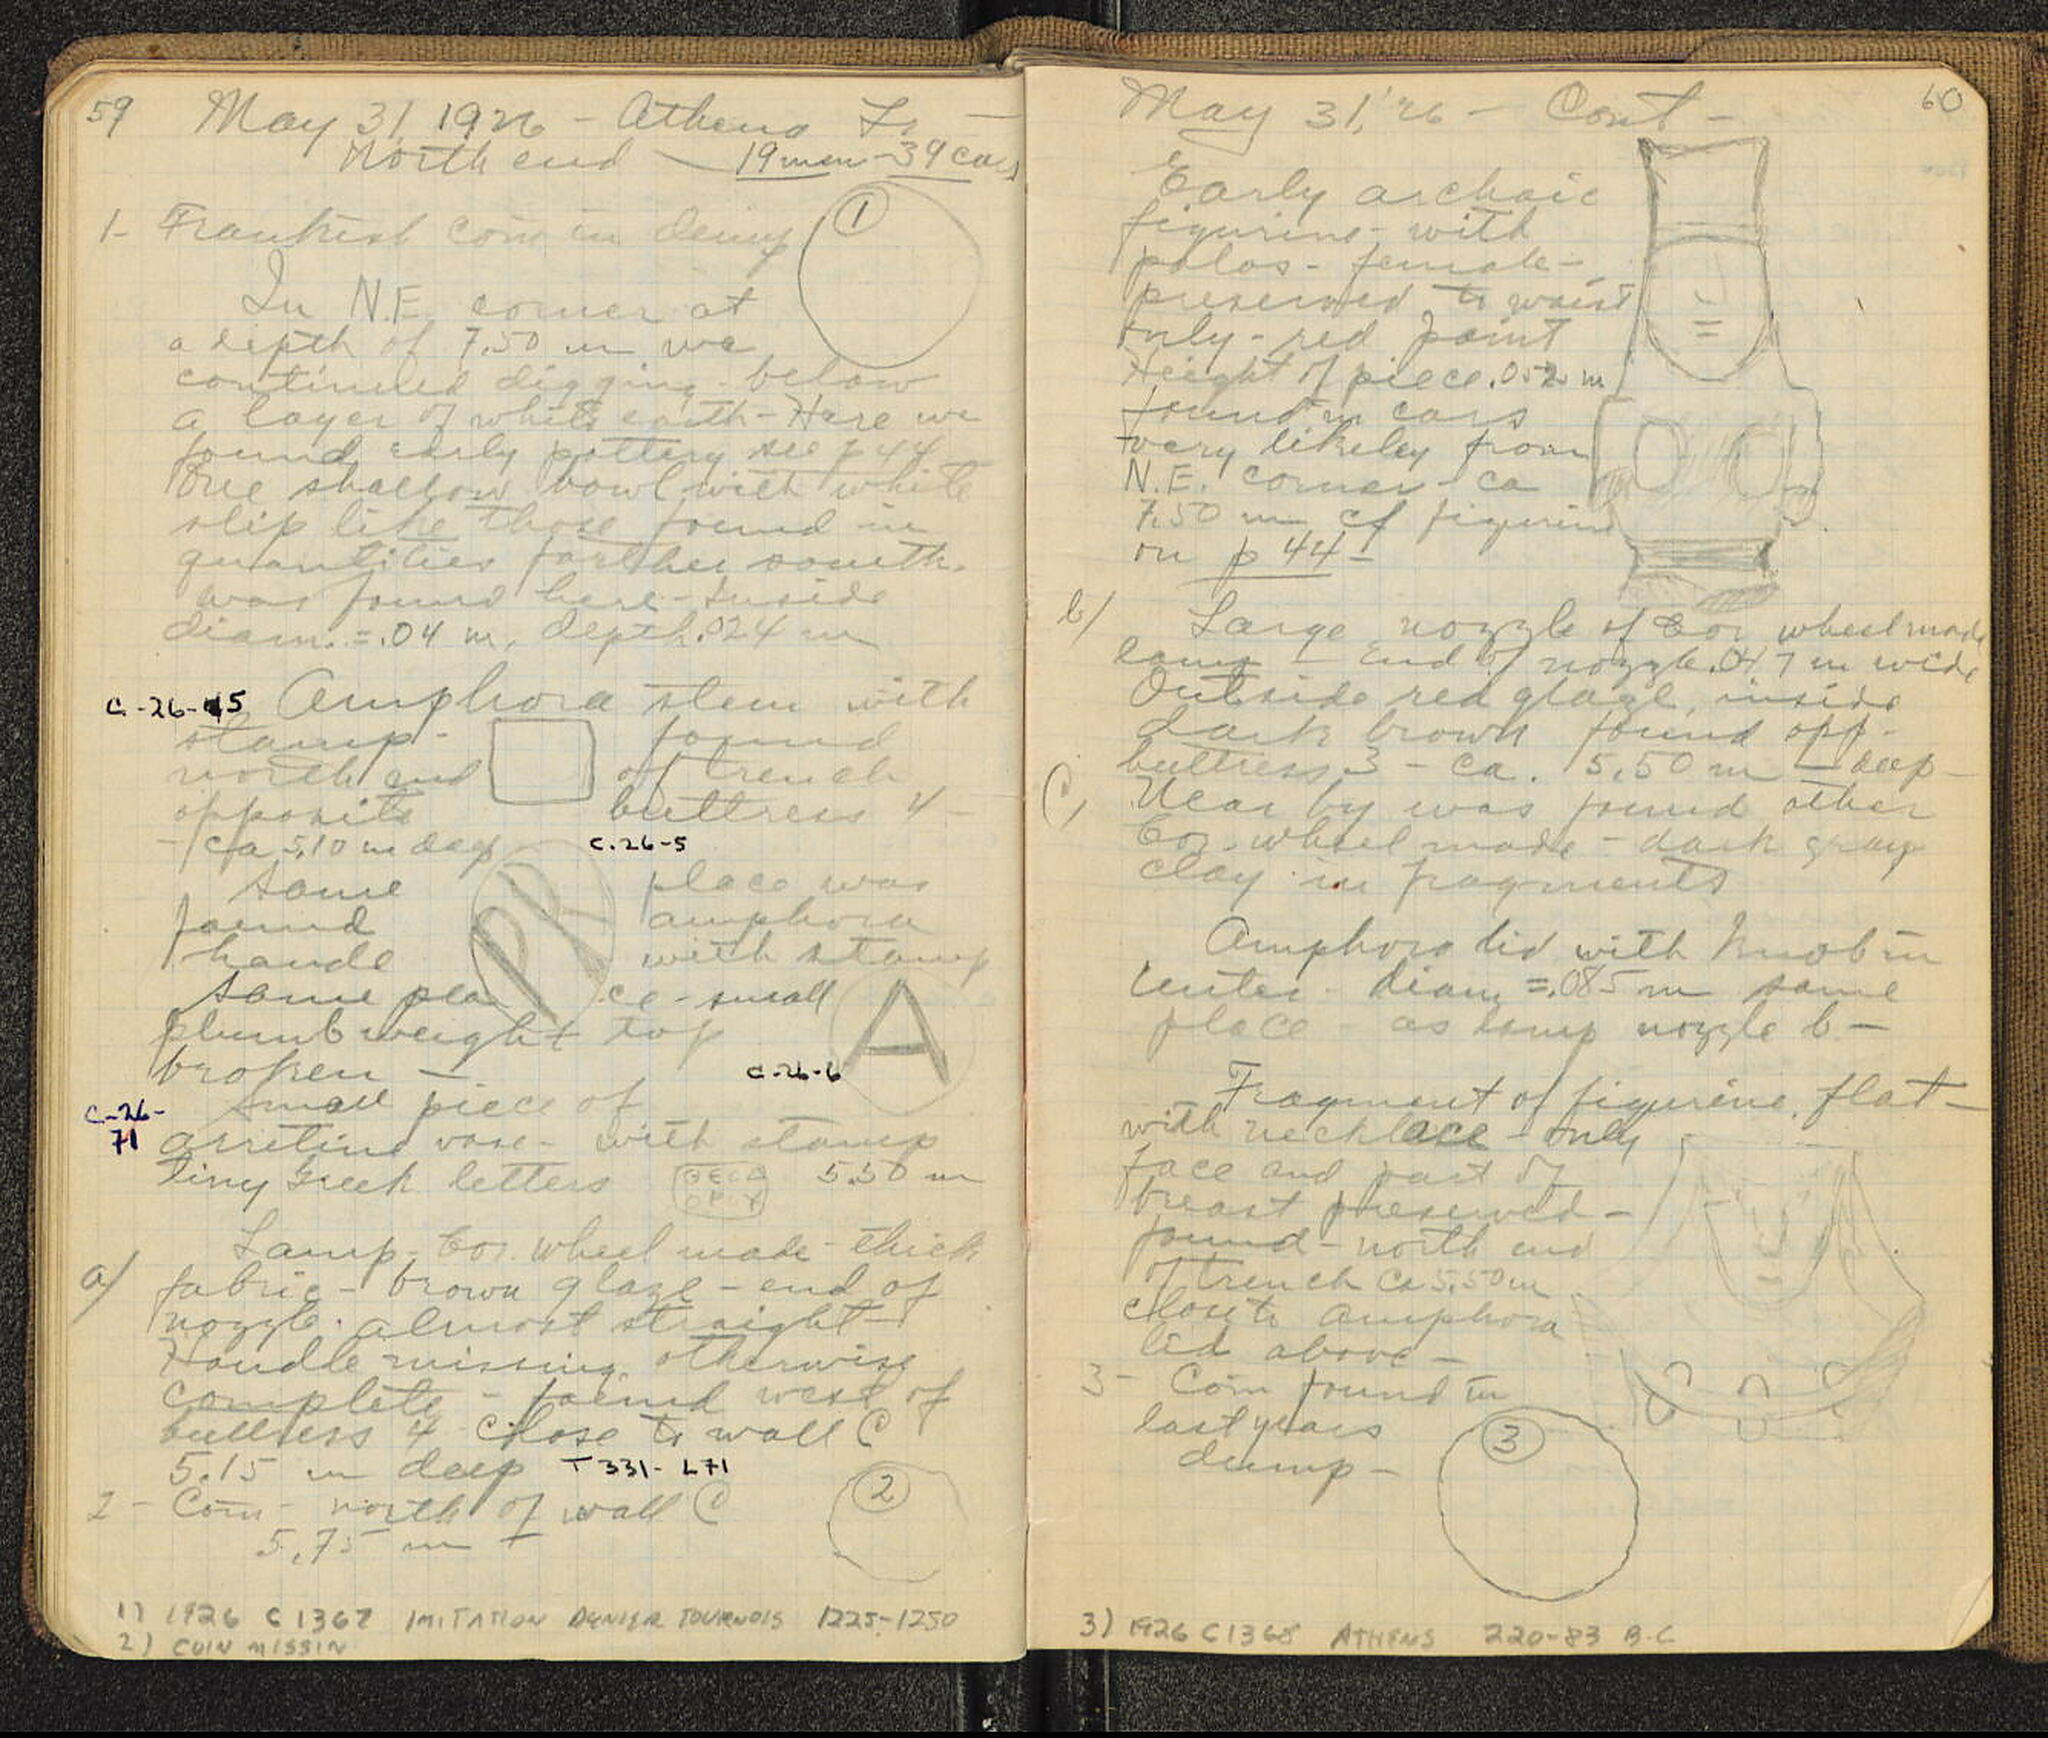 59 May 31, 1926 - Athena Tr -
North end - 19 men - 39 cars
1- Frankish coin in dump
①
In N.E. corner at
a depth of 7.50 m we
continued digging - below
a layer of white earth - Here we
found early pottery see p 44
One shallow bowl with white
slip like those found in
quantities farther south.
was found here - Inside
diam. = .04 m, depth .024 m
C-26-45 Amphora stem with
stamp - found
north end of trench
opposite buttress 4 -
- ca 5.10 m deep C.26-5
Same place was
found amphora
handle with stamp
PR
Same place - small
A
plumb weight top
broken - C-26-6
C-26-71
Small piece of
arretine vase - with stamp
Tiny Greek letters 5.50 m
a/ Lamp - Cor. wheel made - thick
fabric - brown glaze - end of
nozzle almost straight -
Handle missing otherwise
complete - found west of
buttress 4 close to wall C
5.15 m deep T 331- L71
2 - Coin - north of wall C
5.75 m
②
1) 1926 C 1367 IMITATION DENIER TOURNOIS 1225-1250
2) COIN MISSIN
May 31, '26 - Cont - 60
Early archaic
figurine - with
polos - female -
preserved to waist
only - red paint
Height of piece .052 m
found in cars
very likeley from
N.E. corner - ca
7.50 m cf figurine
on p 44 -
b/ Large nozzle of Cor wheel made
lamp - End of nozzle .047 m wide
Outside red glaze, inside
dark brown found opp.
buttress 3 - ca. 5.50 m - deep -
C, Near by was found other
Cor. wheel made - dark gray
clay in fragments
Amphora lid with knob in
center - diam = .085 m same
place - as lamp nozzle b -
Fragment of figurine, flat -
with necklace - only
face and part of
breast preserved -
found - north end
of trench ca 5.50 m
close to amphora
lid above -
3 - Coin found in
last years
dump -
③
3) 1926 C 1368 ATHENS 220-83 B.C